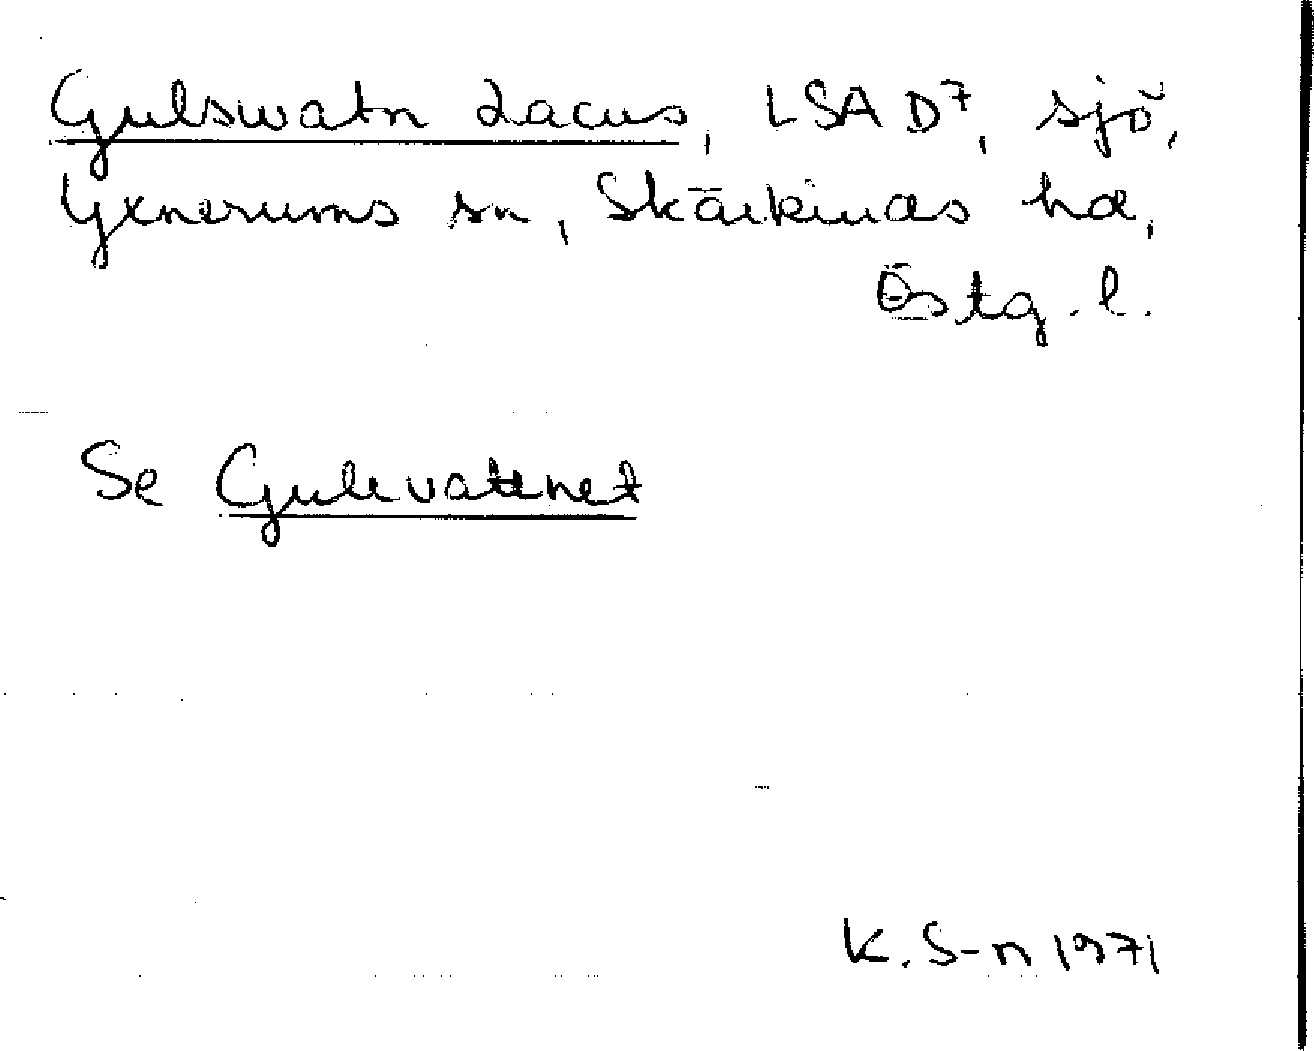 Gulswatn Lacus, LSA D7, sjö,
Yxnerums sn, Skärkinds hd,
Östg. l.
Se Gulevattnet
K. S-n 1971